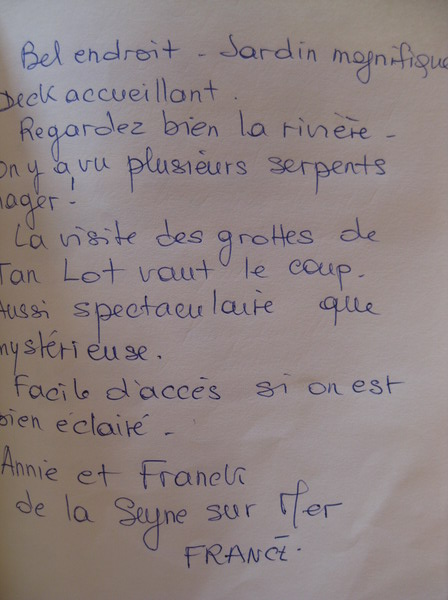 Bel endroit - Jardin magnifique
Deck accueillant.
Regardez bien la rivière -
On y a vu plusieurs serpents
nager !
La visite des grottes de
Tan Lot vaut le coup.
Aussi spectaculaire que
mystérieuse.
Facile d'accès si on est
bien éclairé -
Annie et Franck
de la Seyne sur Mer
FRANCE.